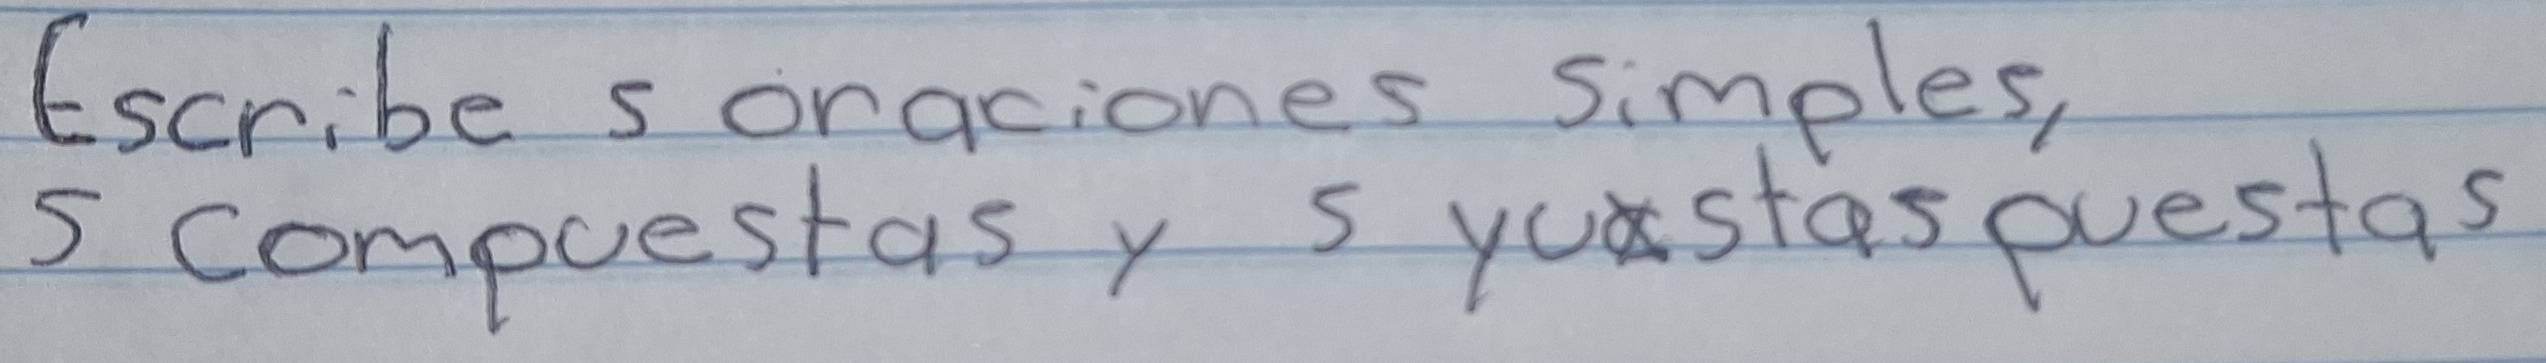 Escribe 5 oraciones simples,
5 compuestas y 5 yuxstaspuestas